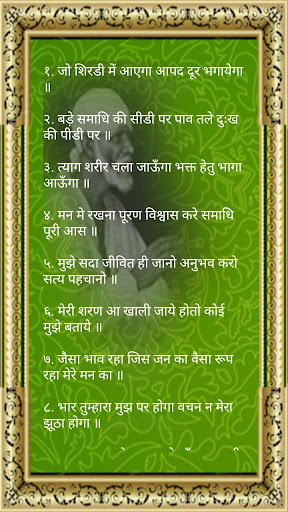 १. जो शिरडी में आएगा आपद दूर भगायेगा
॥
२. बड़े समाधि की सीडी पर पाव तले दुःख
की पीडी पर ॥
३. त्याग शरीर चला जाऊँगा भक्त हेतु भागा
आऊँगा ॥
४. मन मे रखना पूरण विश्वास करे समाधि
पूरी आस ॥
५. मुझे सदा जीवित ही जानो अनुभव करो
सत्य पहचानो ॥
६. मेरी शरण आ खाली जाये होतो कोई
मुझे बताये ॥
७. जैसा भाव रहा जिस जन का वैसा रूप
रहा मेरे मन का ॥
८. भार तुम्हारा मुझ पर होगा वचन न मेरा
झूठा होगा ॥